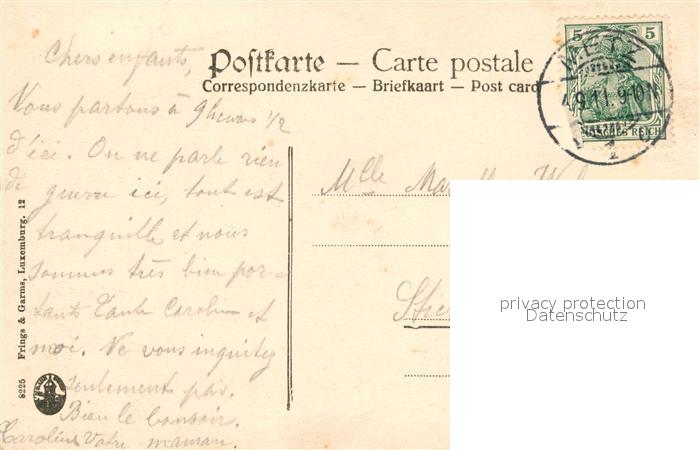 Postkarte — Carte postale
Correspondenzkarte — Briefkaart — Post card
5 5
METZ
4.9.11. 9-10
DEUTSCHES REICH
Chers enfants,
Vous partons à 9 heures 1/2
d'ici. On ne parle rien
de guerre ici, tout est
tranquille et nous
sommes très bien por-
tants Tante Caroline et
moi. Ne vous inquitez
seulement pas.
Bien le bonsoir.
Caroline Votre maman.
Mlle
8225 Frings & Garms, Luxemburg. 12
privacy protection
Datenschutz